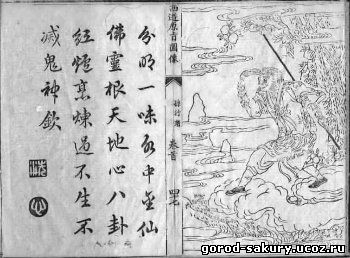 西遊原旨圖像
孫行者
卷首
分明一味水中金仙
佛靈根天地心八卦
紅爐烹煉過不生不
滅鬼神欽
gorod-sakury.ucoz.ru